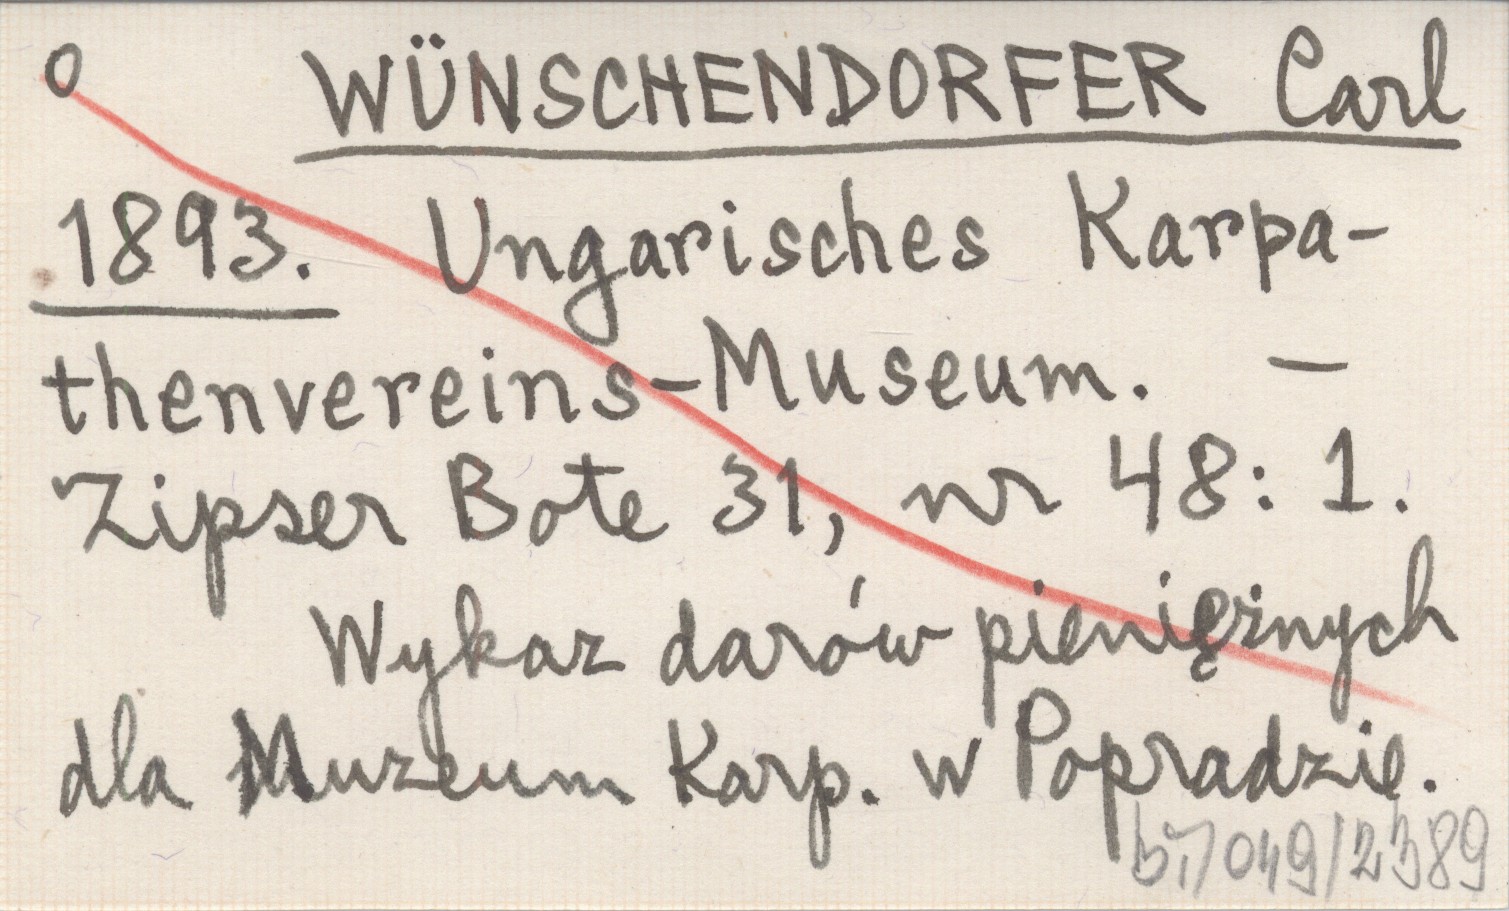 O WÜNSCHENDORFER Carl
1893. Ungarisches Karpa-
thenvereins-Museum. —
Zipser Bote 31, nr 48: 1.
Wykaz darów pieniężnych
dla Muzeum Karp. w Popradzie.
049/2389